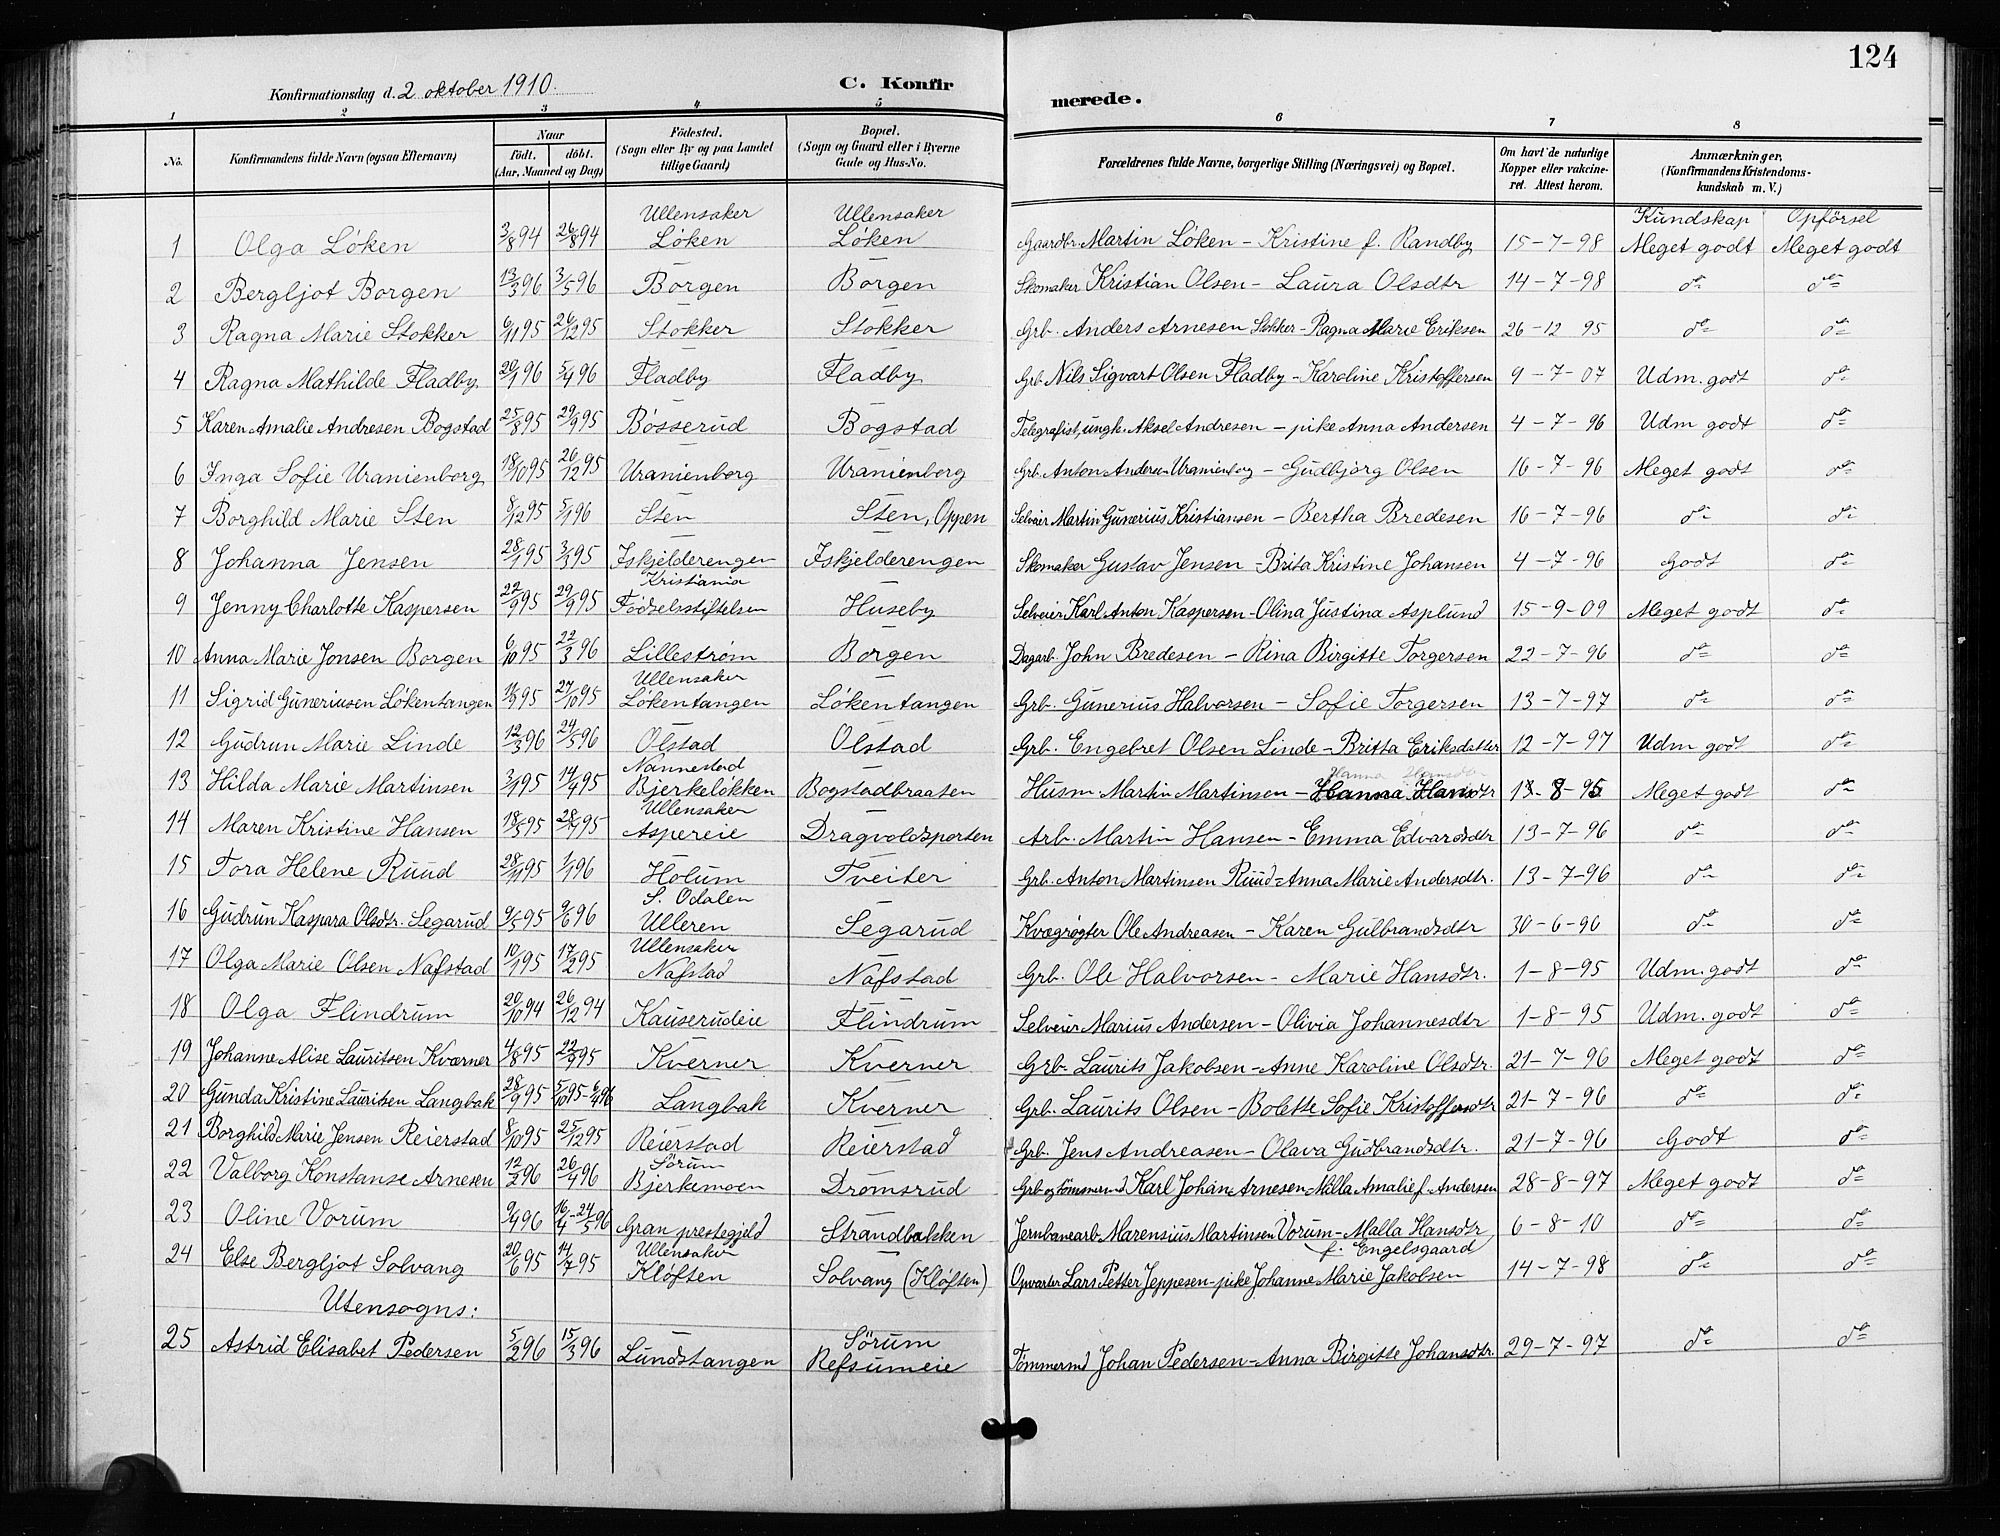 124
Konfirmationsdag d. 2 oktober 1910. C. Konfirmerede.
1 2 3 4 5 6 7 8
No. Konfirmandens fulde Navn (ogsaa Efternavn) Naar födt. döbt. (Aar, Maaned og Dag) Födested. (Sogn eller By og paa Landet tillige Gaard) Bopæl. (Sogn og Gaard eller i Byerne Gade og Hus-No. Forældrenes fulde Navne, borgerlige Stilling (Næringsvei) og Bopæl. Om havt de naturlige Kopper eller vakcineret. Attest herom. Anmærkninger, (Konfirmandens Kristendomskundskab m. V.)
Ullensaker Ullensaker Kundskap Opförsel
1 Olga Löken 3/8 94 26/8 94 Löken Löken Gaardbr. Martin Löken – Kristine f. Randby 15-7-98 Meget godt Meget godt
2 Bergljot Borgen 13/3 96 3/5 96 Borgen Borgen Skomaker Kristian Olsen – Laura Olsdtr 14-7-98 do do
3 Ragna Marie Stokker 6/11 95 26/12 95 Stokker Stokker Grb. Anders Arnesen Stokker – Ragna Marie Eriksen 26-12 95 do do
4 Ragna Mathilde Fladby 20/1 96 5/4 96 Fladby Fladby Grb. Nils Sigvart Olsen Fladby – Karoline Kristoffersen 9-7-07 Udm. godt do
5 Karen Amalie Andresen Bogstad 25/8 95 29/9 95 Bösserud Bogstad Telegrafist, ungk. Aksel Andresen – pike Anna Andersen 4-7-96 Udm godt do
6 Inga Sofie Uranienborg 18/10 95 26/12 95 Uranienborg Uranienborg Grb. Anton Andersen Uranienborg – Gudbjörg Olsen 16-7-96 Meget godt do
7 Borghild Marie Sten 8/12 95 5/1 96 Sten Sten, Oppen Selveier Martin Gunerius Kristiansen – Bertha Bredesen 16-7-96 do do
8 Johanna Jensen 28/1 95 3/3 95 Iskjelderengen Iskjelderengen Skomaker Gustav Jensen – Brita Kristine Johansen 4-7-96 Godt do
Kristiania
9 Jenny Charlotte Kaspersen 22/9 95 29/9 95 Födselsstiftelsen Huseby Selveier Karl Anton Kaspersen – Olina Justina Asplund 15-9-09 Meget godt do
10 Anna Marie Jonsen Borgen 6/10 95 22/3 96 Lilleström Borgen Dagarb. John Bredesen – Rina Birgitte Torgersen 22-7-96 do do
Ullensaker
11 Sigrid Guneriusen Lökentangen 11/9 95 27/10 95 Lökentangen Lökentangen Grb. Gunerius Halvorsen – Sofie Torgersen 13-7-97 do do
12 Gudrun Marie Linde 12/3 96 24/5 96 Olstad Olstad Grb. Engebret Olsen Linde – Britta Eriksdatter 12-7-97 Udm godt do
Nannestad
13 Hilda Marie Martinsen 3/1 95 14/4 95 Bjerkelökken Bogstadbraaten Husm. Martin Martinsen – Hanna Hansdtr 13-8-95 Meget godt do
Ullensaker
14 Maren Kristine Hansen 18/5 95 28/7 95 Aspereie Dragvoldsporten Arb. Martin Hansen – Emma Edvardsdtr 13-7-96 do do
15 Tora Helene Ruud 28/11 95 1/1 96 Holum Tveiter Grb. Anton Martinsen Ruud – Anna Marie Andersdtr. 13-7-96 do do
S. Odalen
16 Gudrun Kaspara Olsdtr. Segarud 9/5 95 9/6 96 Ulleren Segarud Kvægrögter Ole Andreasen – Karen Gulbrandsdtr 30-6-96 do do
Ullensaker
17 Olga Marie Olsen Nafstad 10/1 95 17/2 95 Nafstad Nafstad Grb. Ole Halvorsen – Marie Hansdtr. 1-8-95 Udm. godt do
18 Olga Flindrum 20/10 94 26/12 94 Kauserudeie Flindrum Selveier Marius Andersen – Olivia Johannesdtr 1-8-95 Udm. godt do
19 Johanne Alise Lauritsen Kværner 4/8 95 22/9 95 Kverner Kverner Grb. Laurits Jakobsen – Anne Karoline Olsdtr. 21-7-96 Meget godt do
20 Gunda Kristine Lauritsen Langbak 28/9 95 5/10 95 – 6/4 96 Langbak Kverner Grb. Laurits Olsen – Bolette Sofie Kristoffersdtr 21-7-96 do do
21 Borghild Marie Jensen Reierstad 8/10 95 25/12 95 Reierstad Reierstad Grb. Jens Andreasen – Olava Gudbrandsdtr. 21-7-96 Godt do
Sörum
22 Valborg Konstanse Arnesen 12/2 96 26/4 96 Bjerkemoen Dromsrud Grb og tömmermd Karl Johan Arnesen Milla Amalie f. Andersen 28-8-97 Meget godt do
23 Oline Vorum 9/4 96 16/4 – 24/5 96 Gran prestegjeld Strandbakken Jernbanearb. Marensius Martinsen Vorum – Malla Hansdtr 6-8-10 do do
Ullensaker f. Engelsgaard
24 Else Bergljot Solvang 20/6 95 14/7 95 Klöften Solvang (Klöften) Opvarter Lars Petter Jeppesen – pike Johanne Marie Jakobsen 14-7-98 do do
Utensogns:
Sörum
25 Astrid Elisabet Pedersen 5/2 96 15/3 96 Lundstangen Refsumeie Tömmermd Johan Pedersen – Anna Birgitte Johansdtr. 29-7-97 do do